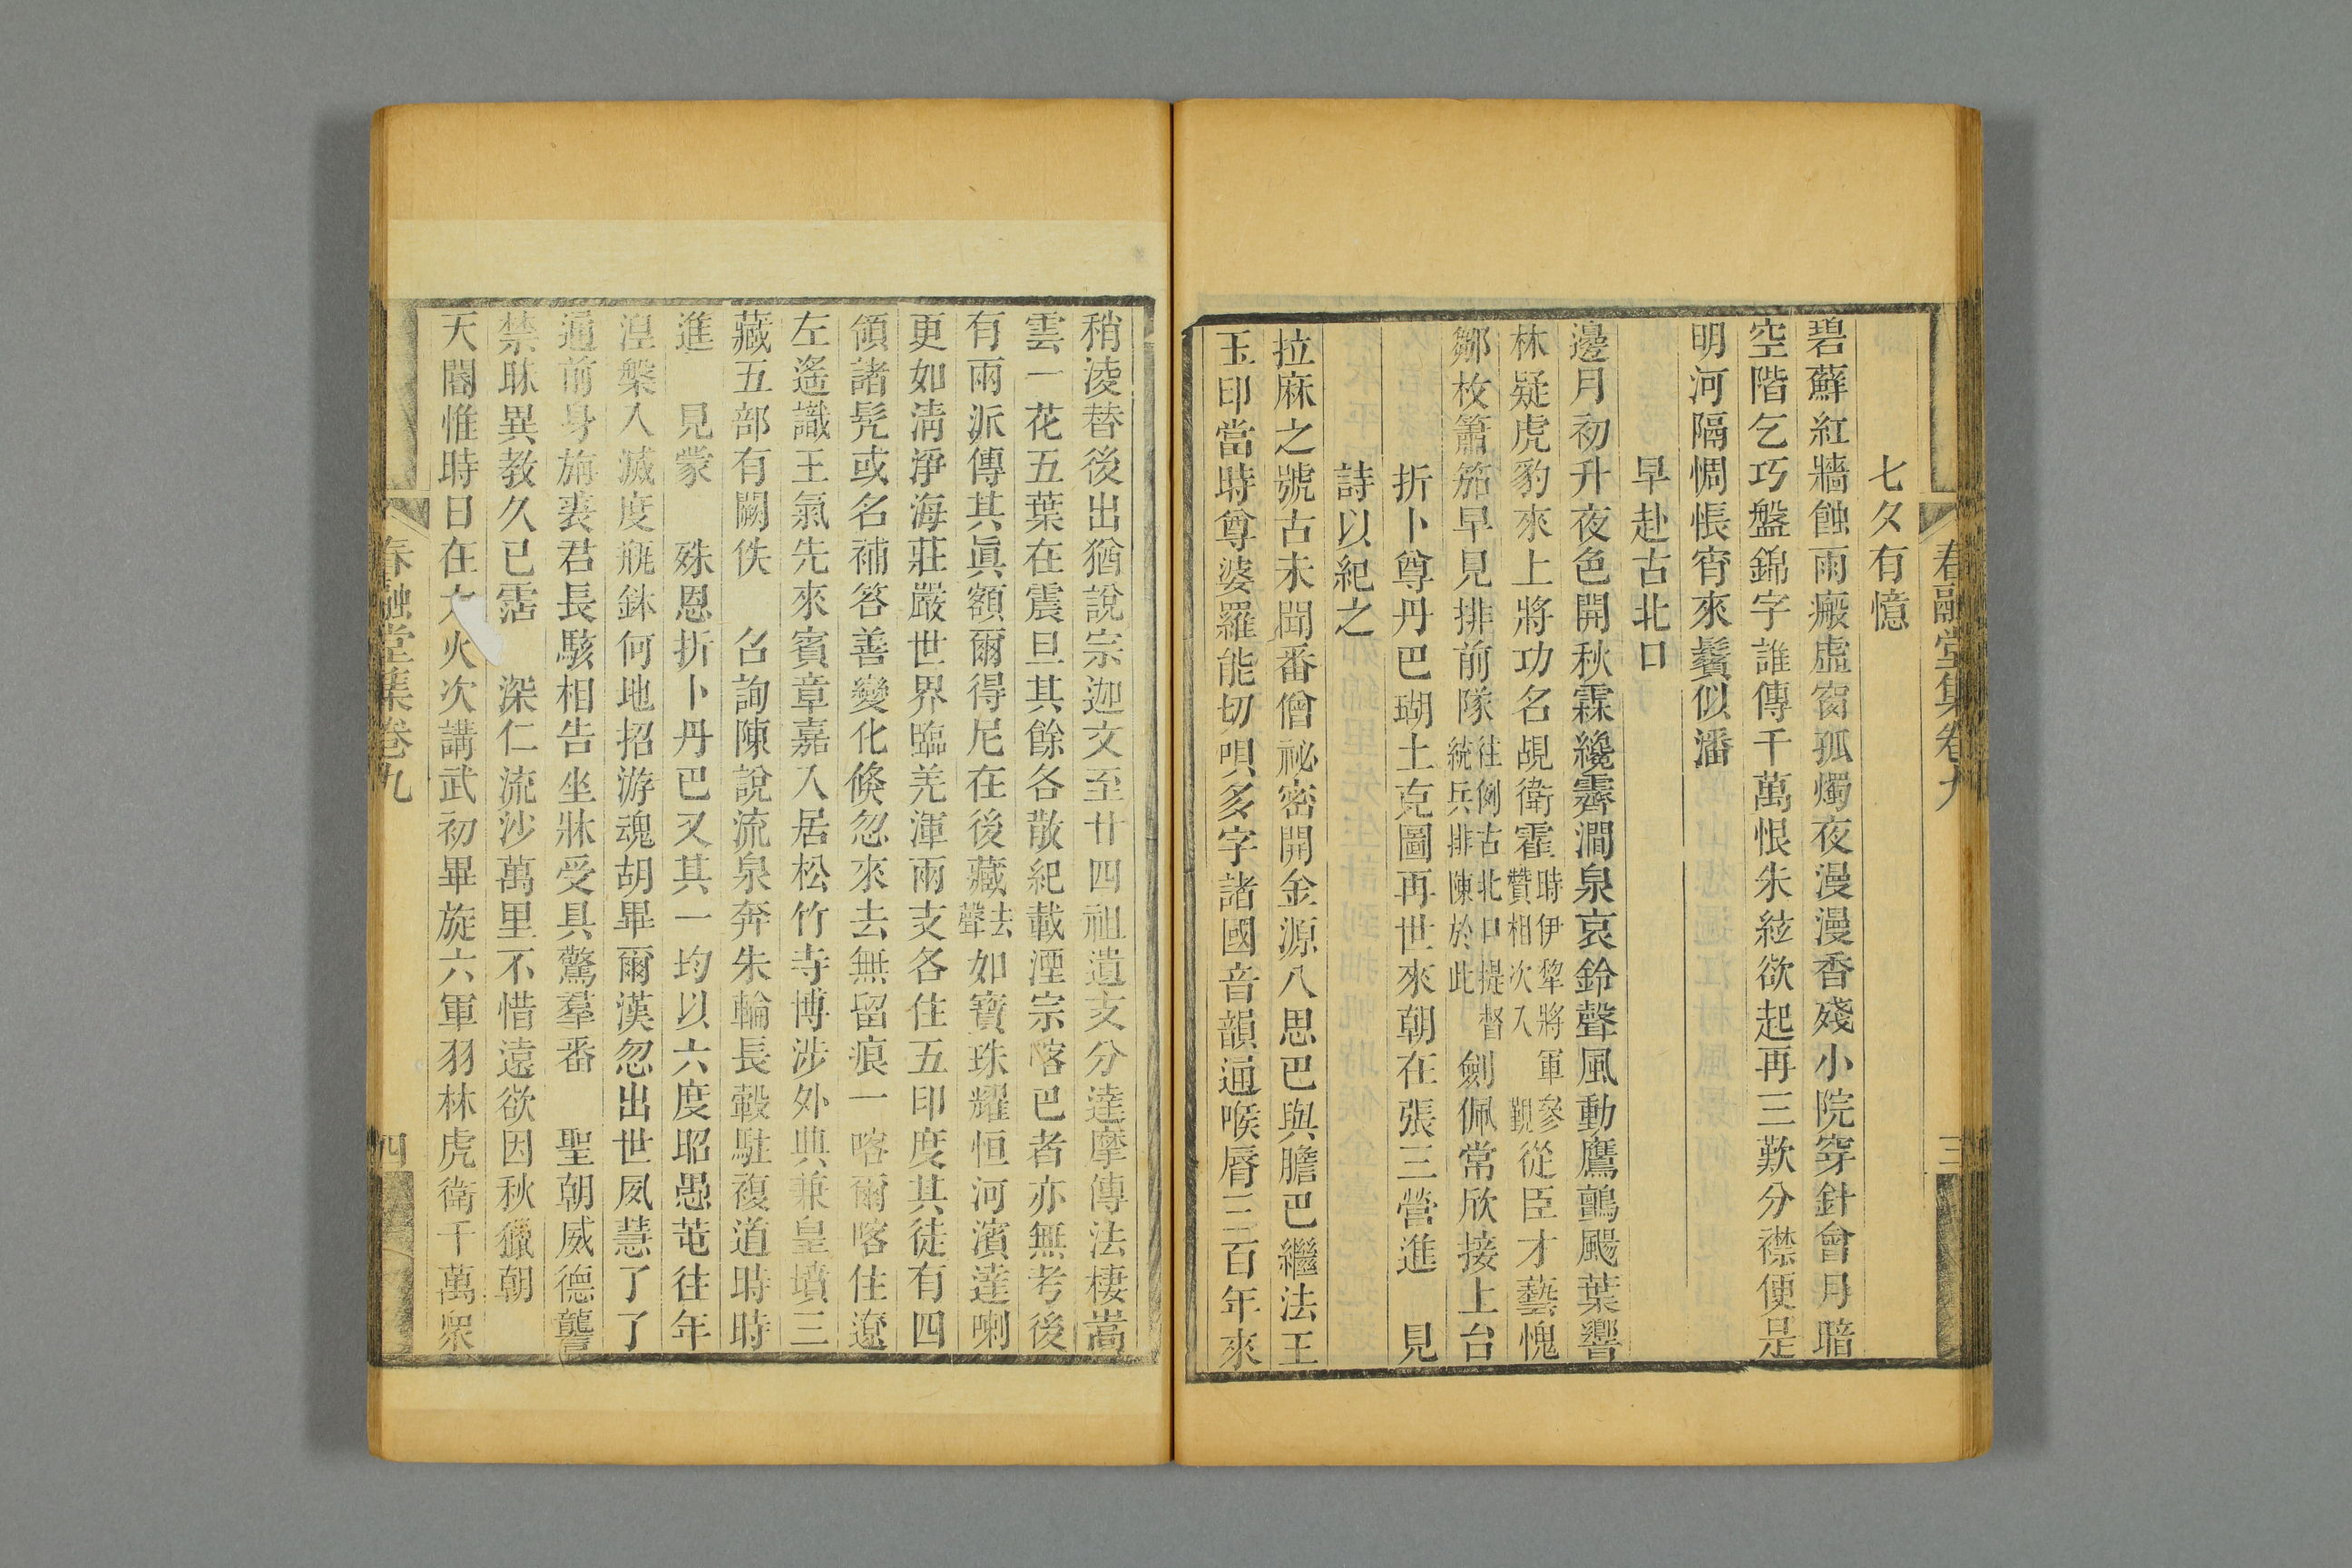 春融堂集卷九
三
七夕有憶
碧蘚紅牆蝕雨瘢虛窗孤燭夜漫漫香殘小院穿針會月暗
空階乞巧盤錦字誰傳千萬恨朱絃欲起再三歎分襟便是
明河隔惆悵宵來鬢似潘
早赴古北口
邊月初升夜色開秋霖纔霽澗泉哀鈴聲風動鷹鸇颺葉響
林疑虎豹來上將功名覘衛霍時伊犂將軍參贊相次入覲從臣才藝愧
鄒枚簫笳早見排前隊往例古北口提督統兵排陳於此劍佩常欣接上台
折卜尊丹巴瑚土克圖再世來朝在張三營進 見
詩以紀之
拉麻之號古未聞番僧祕密開金源八思巴與膽巴繼法王
玉印當時尊婆羅能切唄多字諸國音韻通喉脣三百年來
稍淩替後出猶說宗迦文至廿四祖遺支分達摩傳法棲嵩
雲一花五葉在震旦其餘各散紀載湮宗喀巴者亦無考後
有兩派傳其眞額爾得尼在後藏去聲如寶珠耀恒河濱達喇
更如淸淨海莊嚴世界臨羌渾兩支各住五印度其徒有四
領諸髡或名補答善變化倐忽來去無留痕一喀爾喀住遼
左遙識王氣先來賓章嘉入居松竹寺博涉外典兼皇墳三
藏五部有闕佚 召詢陳說流泉奔朱輪長轂駐複道時時
進 見蒙 殊恩折卜丹巴又其一均以六度昭愚芚往年
湼槃入滅度瓶鉢何地招游魂胡畢爾漢忽出世夙慧了了
通前身旃裘君長駭相告坐牀受具驚羣番 聖朝威德讋
禁眛異教久已霑 深仁流沙萬里不惜遠欲因秋獵朝
天閽惟時日在大火次講武初畢旋六軍羽林虎衛千萬衆
春融堂集卷九
四